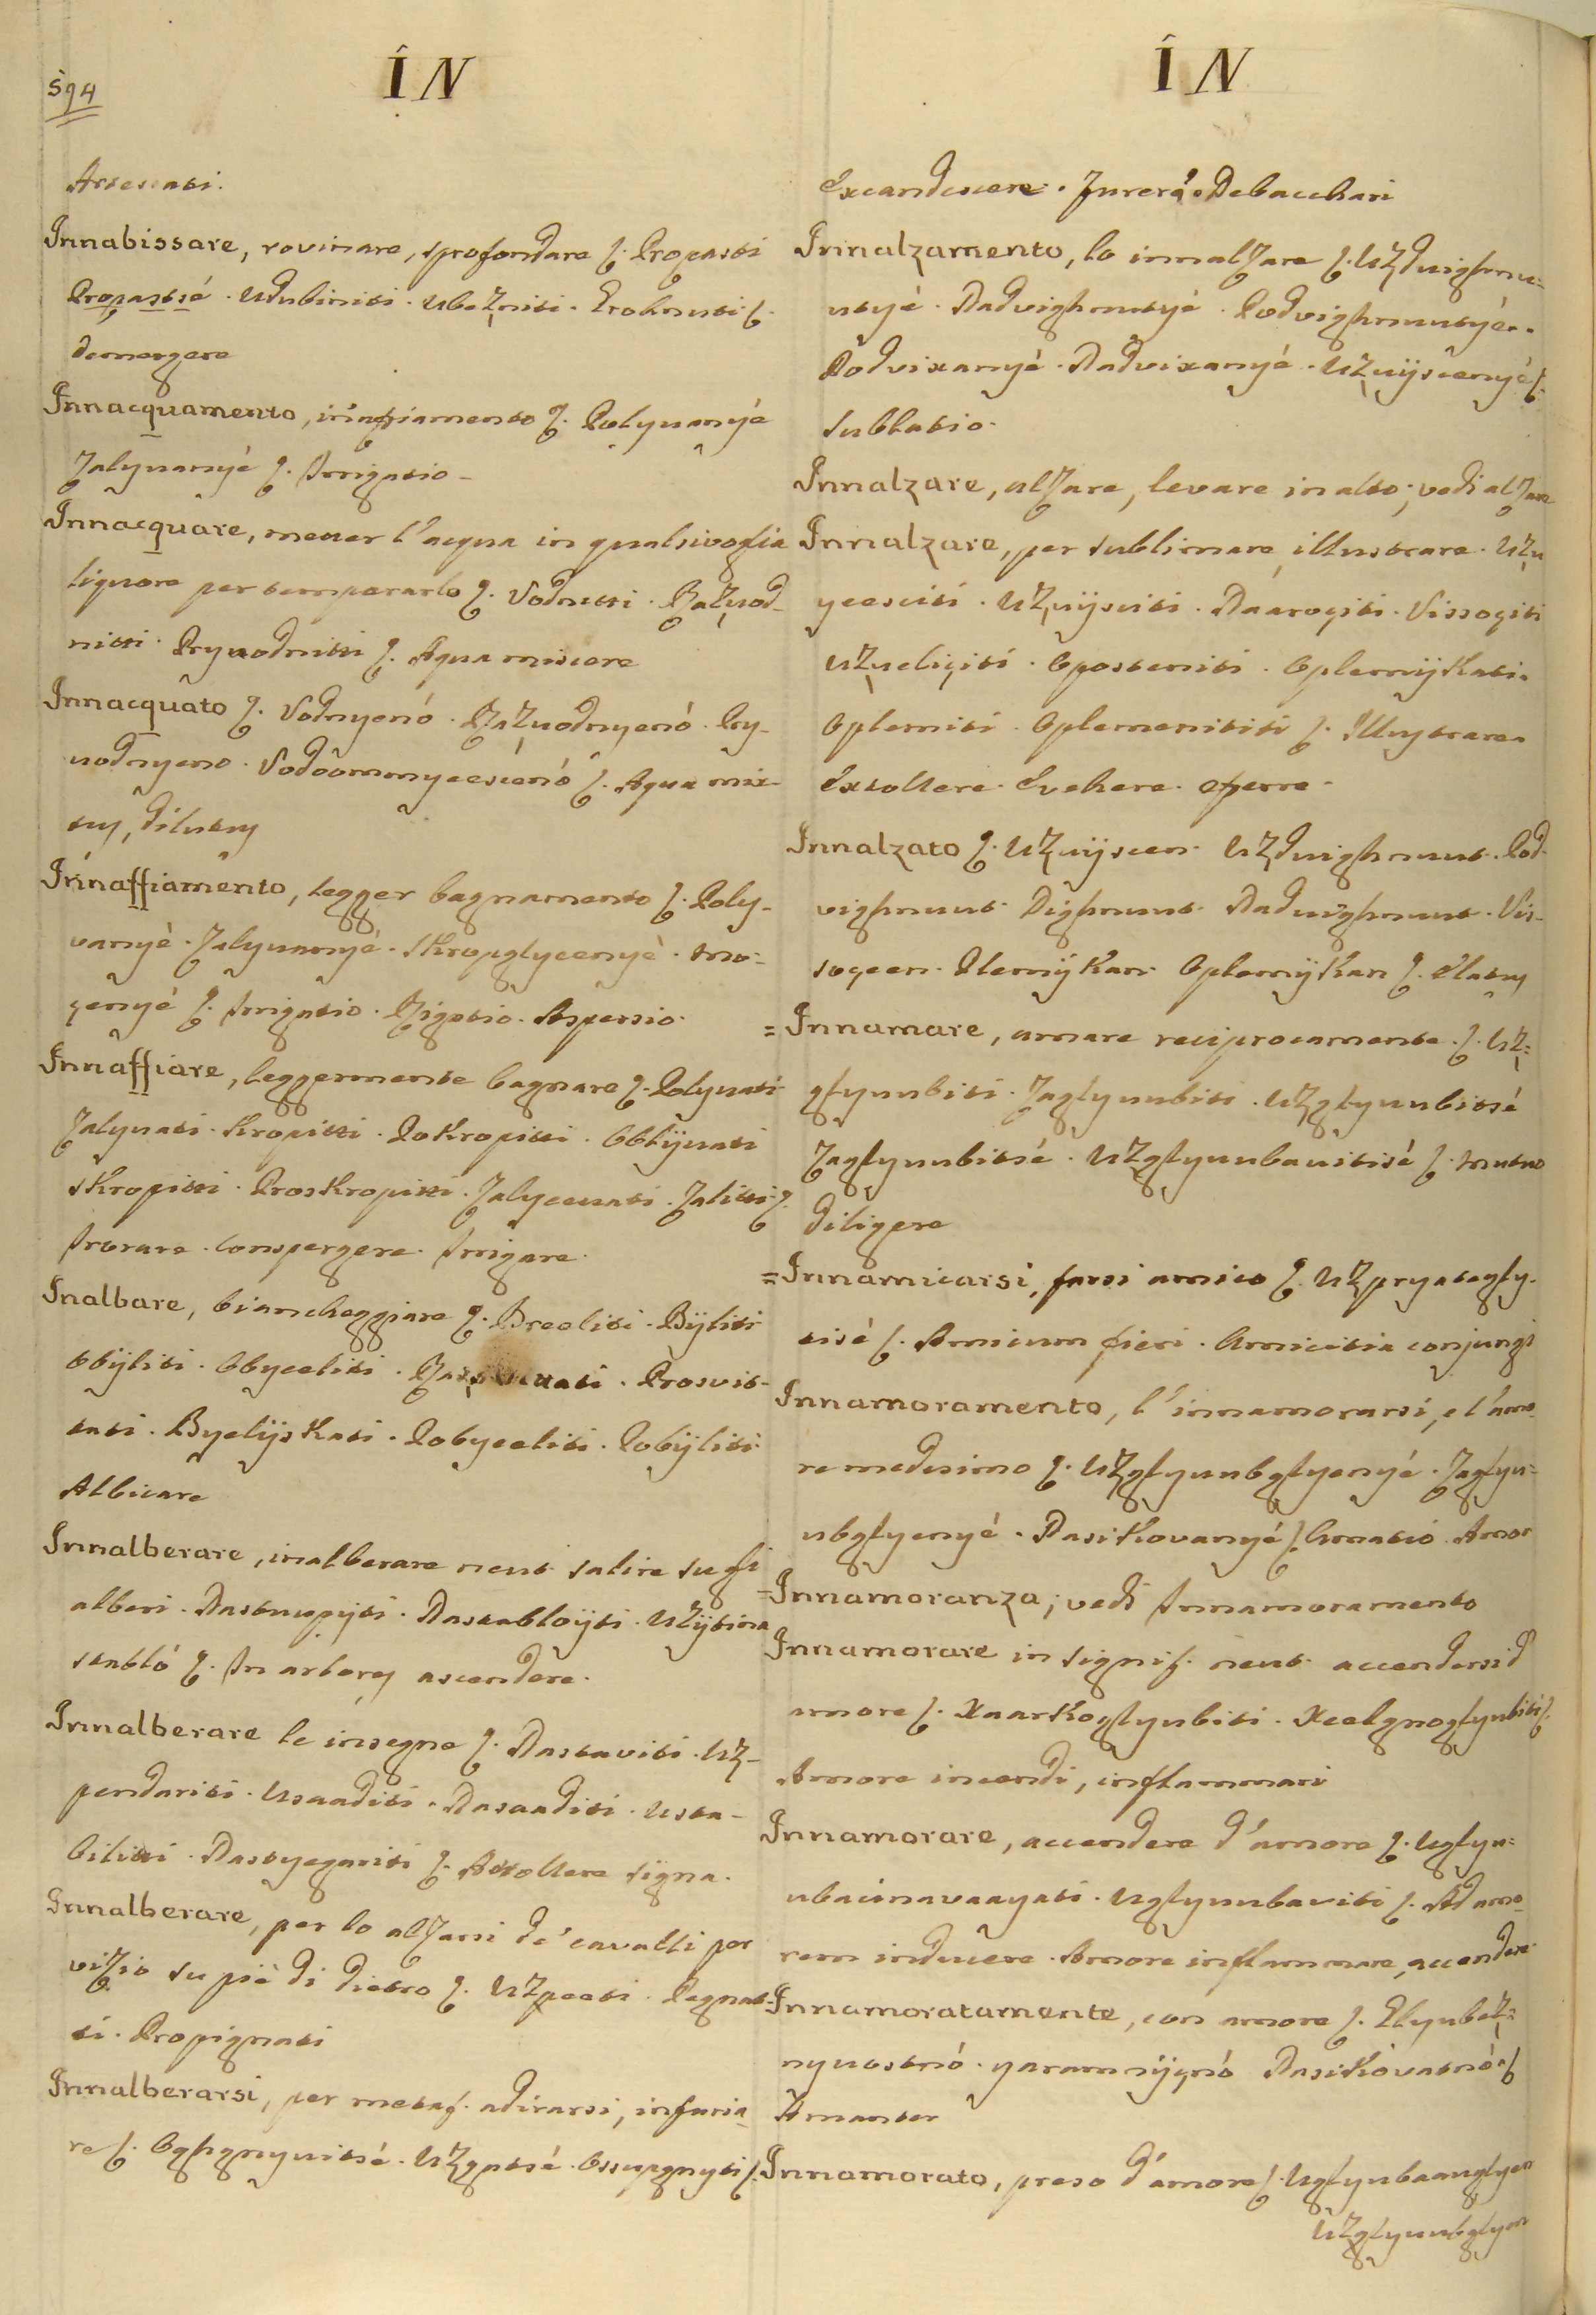 594
IN
Arrenati.
Innabissare, rovinare, sprofondare ſ. Propasti
Propastsé . Udubiniti . Ubezniti . Proknuti ſ.
demergere
Innacquamento, innaffiamento ſ. Polyvanyé
Zalyvanyé ſ. Irrigatio
Innacquare, metter l'acqua in qualsivoglia
liquore per temperarlo ſ. Vodnitti . Razvod-
nitti . Pryvodnitti ſ. Aqua miscere
Innacquato ſ. Vodnyenó . Razvodnyenó . Pry-
vodnyeno . Vodoomnyeescenó ſ. Aqua mix-
tus, dilutus
Innaffiamento, legger bagnamento ſ. Poly-
vanyé . Zalyvanyé . Skropglyeenyé . Mo-
çenyé ſ. Irrigatio . Rigatio . Aspersio.
Innaffiare, leggermente bagnare ſ. Polyvati
Zalyvati . Kropitti . Pokropitti . Obblÿvati
Skropitti . Proskropitti . Zalyeevati . Zalitti ſ.
Irrorare . Conspergere . Irrigare.
Inalbare, biancheggiare ſ. Breeliti . Bÿliti
Obÿliti . Obyeeliti . Prosvit-
tati . Byelÿskati . Pobyeeliti . Pobÿliti
Albicare
Innalberare, inalberare neut. salire su gli
alberi . Nastupÿti . Nastabloÿti . Uzÿtina
stabló ſ. In arbores ascendere.
Innalberare le insegne ſ. Nastaviti . Uz-
pendariti . Usaaditi . Nasaaditi . Usta-
biliti . Nastyegariti ſ. Attollere signa.
Innalberare, per lo alzarsi de' cavalli per
vizio su piè di dietro ſ. Uzpeeti . Pegnat-
ti . Propignati
Innalberarsi, per metaf. adirarsi, infuria-
re ſ. Oghgnyvitsé . Uzgatsé . Ossupgnyti ſ.
IN
Excandescere . Furere . Debacchari
Innalzamento, lo innalzare ſ. Uzdvighnu-
utyé . Nadvighnutyé . Podvighnuutyé .
Podvixanyé . Nadvixanyé . Uzvÿscenyé ſ.
Sublatio.
Innalzare, alzare, levare in alto; vedi alzare
Innalzare, per sublimare, illustrare . Uzu
yeesciti . Uzvÿsciti . Naaroçiti . Vissoçiti
Uzveliçiti . Oposteniti . Oplemÿkati .
Oplemiti . Oplemenititi ſ. Illustrare .
Extollere . Evehere . Efferre .
Innalzato ſ. Uzvÿscen . Uzdvighnuut . Pod-
vighnuut . Dighnuut . Nadvighnuut . Vis-
soçeen . Plemÿkan . Oplemÿkan ſ. Elatus
= Innamare, amare reciprocamente ſ. Uz-
glyuubiti . Zaglyuubiti . Uzglyuubitsé
Zaglyuubitsé . Uzglyuubavitisé ſ. Mutuo
diligere
= Innamicarsi, farsi amico ſ. Uzpryategly-
tisé ſ. Amicum fieri . Amicitia conjungi
Innamoramento, l'innamorarsi, e l'amo-
re medesimo ſ. Uzglyuubglyenyé . Zaglyu-
ubglyenyé . Nasikovanyé ſ. Amatió . Amor
= Innamoranza; vedi Innamoramento
Innamorare in signif. neut. accendersi d'
amore ſ. Xaarkoglyubiti . Xeelgnoglyubiti ſ.
Amore incendi, inflammari
Innamorare, accendere d'amore ſ. Uglyu-
ubacinavaayati . Uglyuubaviti ſ. Ad amo-
rem inducere . Amore inflammare, accendere
Innamoratamente, con amore ſ. Glyubez-
nyvostnó . yaramnÿçnó . Nasikóvatnó ſ.
Amanter
Innamorato, preso d'amore ſ. Uglyubaanglyen
Uzglyuubglyen